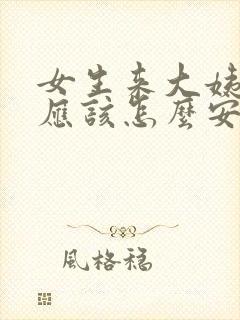 女生来大姨
应该怎么安
風格稳